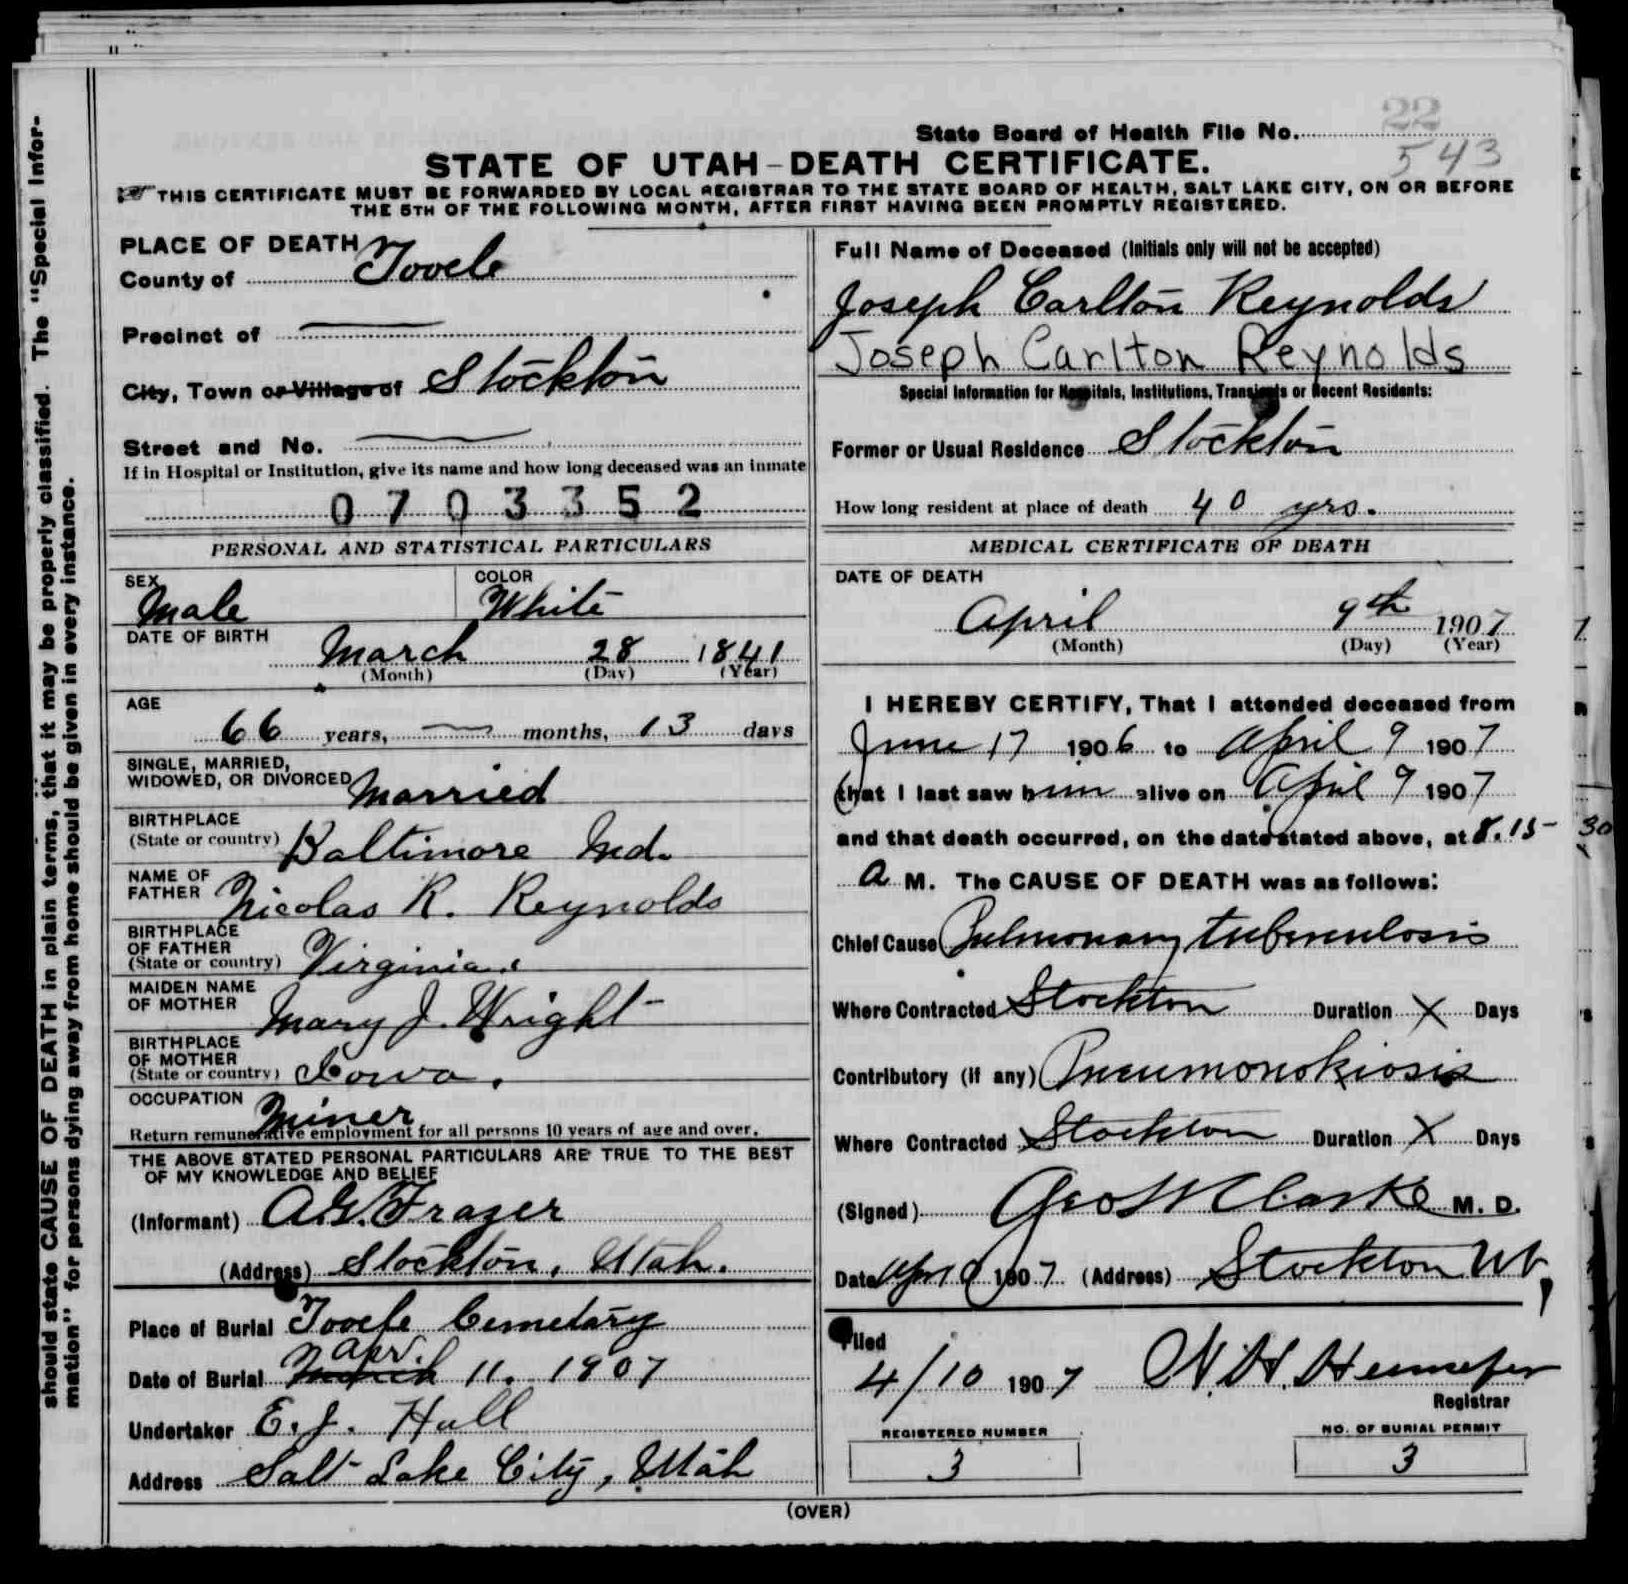 should state CAUSE OF DEATH in plain terms, that it may be properly classified. The "Special Infor-
mation" for persons dying away from home should be given in every instance.
22
State Board of Health File No. 543
STATE OF UTAH-DEATH CERTIFICATE.
THIS CERTIFICATE MUST BE FORWARDED BY LOCAL REGISTRAR TO THE STATE BOARD OF HEALTH, SALT LAKE CITY, ON OR BEFORE
THE 5TH OF THE FOLLOWING MONTH, AFTER FIRST HAVING BEEN PROMPTLY REGISTERED.
PLACE OF DEATH
County of Tooele
Precinct of
City, Town or Village of Stockton
Street and No.
If in Hospital or Institution, give its name and how long deceased was an inmate
0703352
PERSONAL AND STATISTICAL PARTICULARS
SEX Male COLOR White
DATE OF BIRTH March 28 1841
(Month) (Day) (Year)
AGE
66 years, months, 13 days
SINGLE, MARRIED,
WIDOWED, OR DIVORCED Married
BIRTHPLACE
(State or country) Baltimore Md.
NAME OF
FATHER Nicolas R. Reynolds
BIRTHPLACE
OF FATHER
(State or country) Virginia.
MAIDEN NAME
OF MOTHER Mary J. Wright
BIRTHPLACE
OF MOTHER
(State or country) Iowa.
OCCUPATION Miner
Return remunerative employment for all persons 10 years of age and over.
THE ABOVE STATED PERSONAL PARTICULARS ARE TRUE TO THE BEST
OF MY KNOWLEDGE AND BELIEF
(Informant) A.G. Frazer
(Address) Stockton, Utah.
Place of Burial Tooele Cemetary
Apr.
Date of Burial March 11. 1907
Undertaker E. J. Hall
Address Salt Lake City, Utah
Full Name of Deceased (Initials only will not be accepted)
Joseph Carlton Reynolds
Joseph Carlton Reynolds
Special Information for Hospitals, Institutions, Transients or Recent Residents:
Former or Usual Residence Stockton
How long resident at place of death 40 yrs.
MEDICAL CERTIFICATE OF DEATH
DATE OF DEATH
April 9th 1907
(Month) (Day) (Year)
I HEREBY CERTIFY, That I attended deceased from
June 17 1906 to April 9 1907
that I last saw him alive on April 9 1907
and that death occurred, on the date stated above, at 8.15
A M. The CAUSE OF DEATH was as follows:
Chief Cause Pulmonary tuberculosis
Where Contracted Stockton Duration X Days
Contributory (if any) Pneumonokiosis
Where Contracted Stockton Duration X Days
(Signed) Geo W Clarke M. D.
Date Apr 9 1907 (Address) Stockton Ut,
Filed
4/10 1907
Registrar
REGISTERED NUMBER NO. OF BURIAL PERMIT
3 3
(OVER)
30